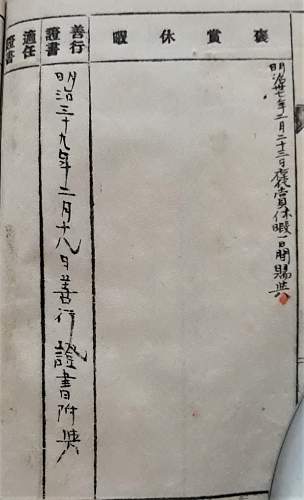 褒賞休暇
明治卅七年二月二十三日褒賞休暇一日間賜典
善行證書
明治三十九年二月十八日善行證書附典
適任證書